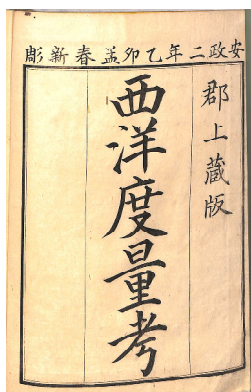 安政二年乙卯孟春新彫
郡上蔵版
西洋度量考